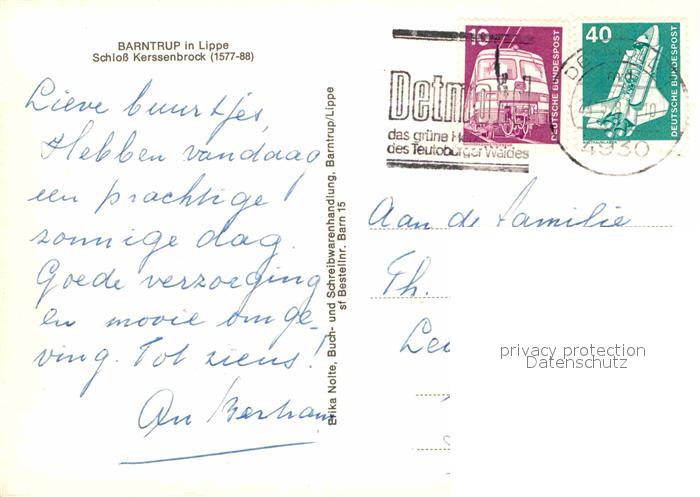 BARNTRUP in Lippe
Schloß Kerssenbrock (1577-88)
Lieve buurtjes,
Hebben vandaag
een prachtige
zonnige dag.
Goede verzorging
en mooie omge-
ving. Tot ziens!
Erika Nolte, Buch- und Schreibwarenhandlung, Barntrup/Lippe
sf Bestellnr. Barn 15
das grüne
des Teutoburger Waldes
10
DEUTSCHE BUNDESPOST
40
DEUTSCHE BUNDESPOST
4930
Aan de familie
Th.
privacy protection
Datenschutz